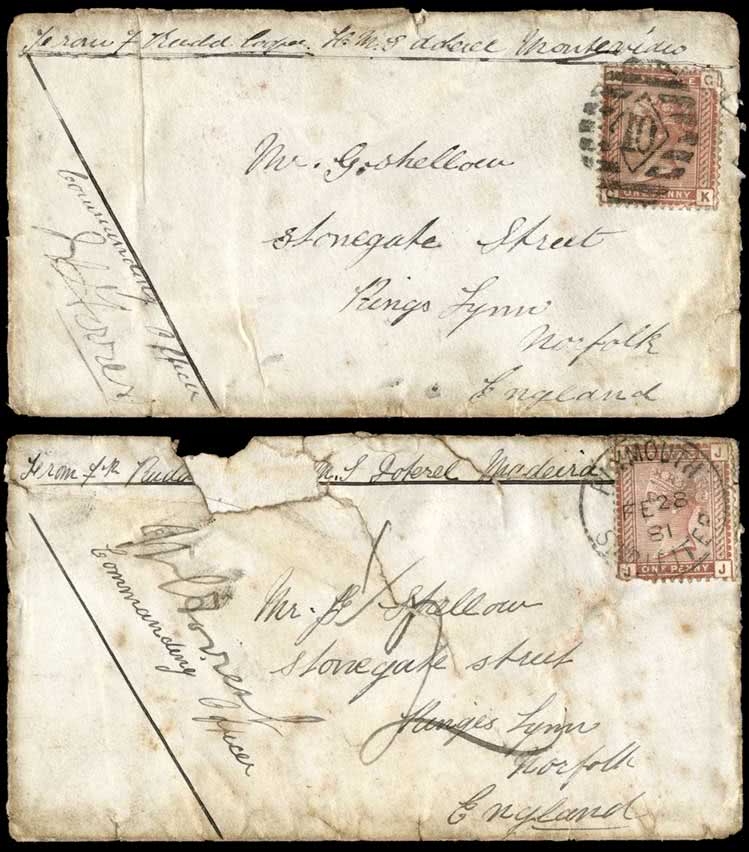 From F Rudd Cooper. H.M.S doterel Montevideo
G
10
C ONE PENNY K
Mr. G. Shellow
Stonegate Street
Kings Lynn
Norfolk
England
Commanding Officer
From
M.S Doterel Madeira
PLYMOUTH
FE 28
81
SHIP LETTER
J
J ONE PENNY J
Commanding Officer
Mr. G Shellow
Stonegate street
Kinges Lynn
Norfolk
England